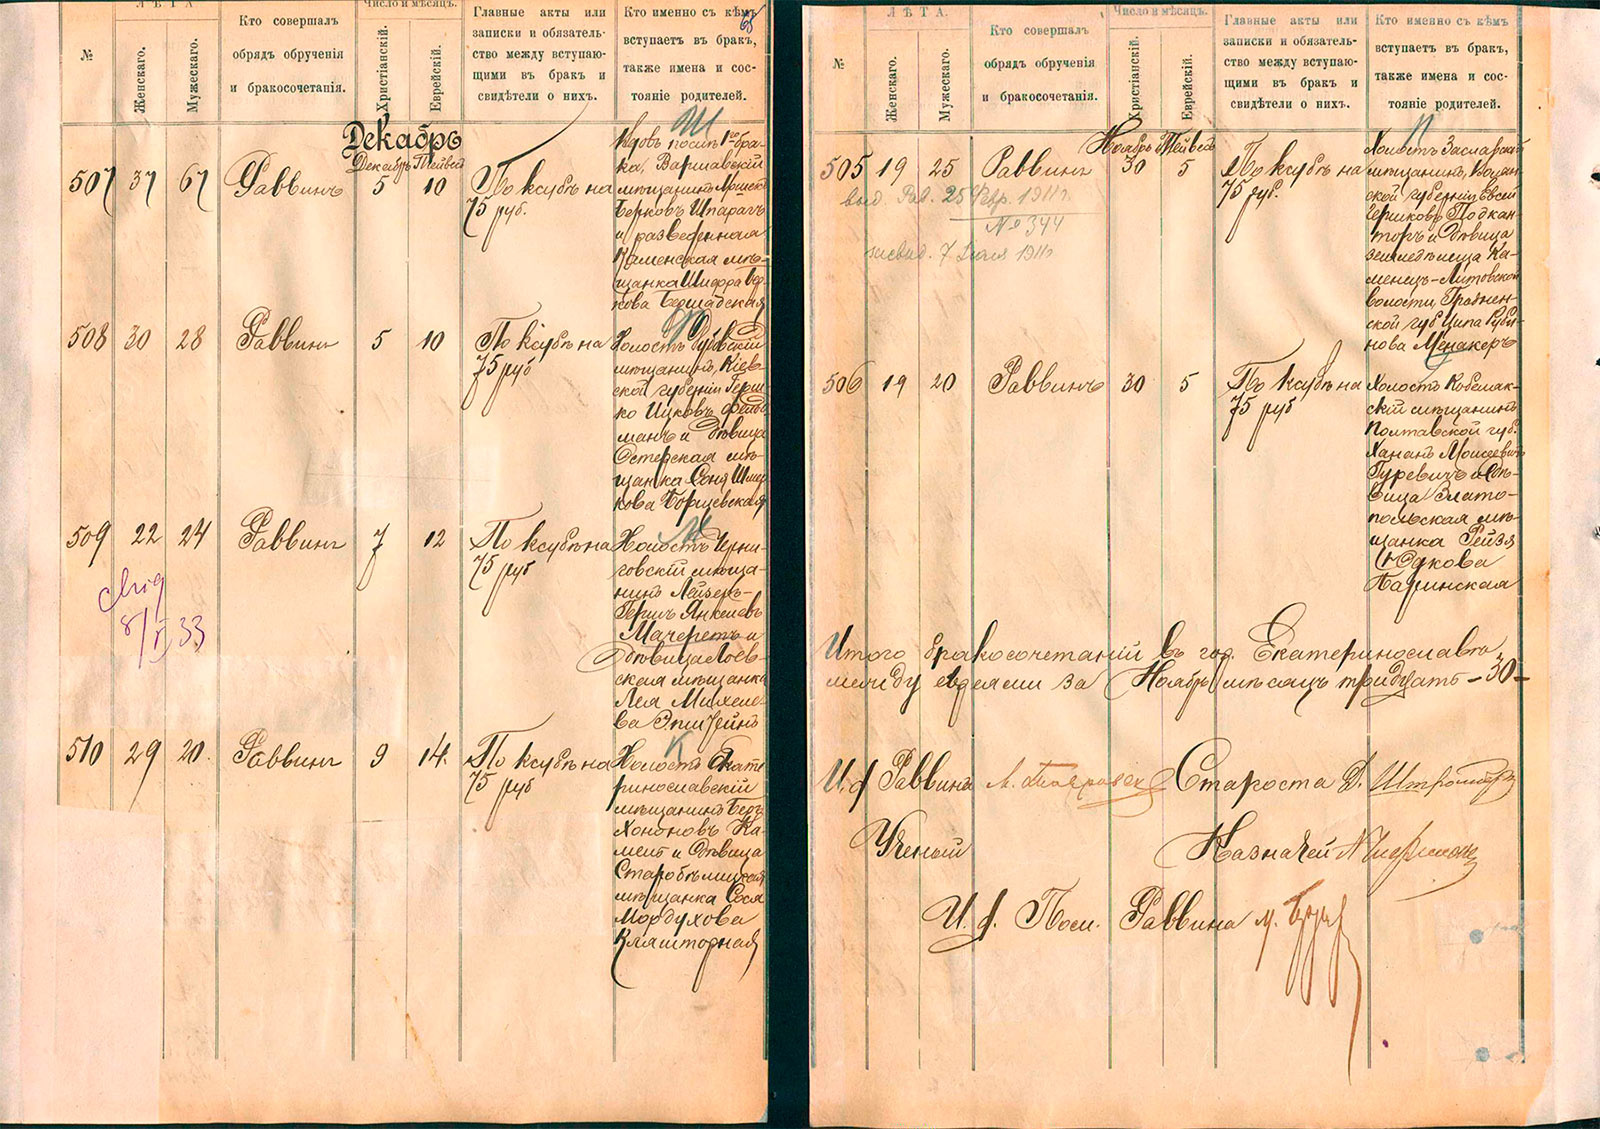 ЛѢТА
№
Женскаго.
Мужескаго.
Кто совершалъ
обрядъ обрученія
и бракосочетанія.
Число и мѣсяцъ.
Христіанскій.
Еврейскій.
Главные акты или
записки и обязатель-
ство между вступаю-
щими въ бракъ и
свидѣтели о нихъ.
Кто именно съ кѣмъ
вступаетъ въ бракъ,
также имена и сос-
тояніе родителей.
68
Декабрь
Декабрь Тейвес
507 37 67 Раввинъ 5 10 По ксубѣ на
75 руб.
Ш
Вдовъ послѣ 1го бра-
ка, Варшавскій
мѣщанинъ
Берковъ Шпарагъ
и разведенная
Каменская мѣ-
щанка Шифра Бер-
кова Бершадская
508 30 28 Раввинъ 5 10 По ксубѣ на
75 руб
Холостъ
мѣщанинъ, Кіев-
ской губерніи Герш-
ко Ицковъ Фельд-
манъ и дѣвица
Остерская мѣ-
щанка Соня Шму-
кова Борщевская
509 22 24 Раввинъ 7 12 По ксубѣ на
75 руб
М
Холостъ Черни-
говскій мѣща-
нинъ Лейзеръ-
Гершъ Янкелевъ
Мачеретъ и
дѣвица Лоев-
ская мѣщанка
Лея Михеле-
ва Эпштейнъ
8/II 33
510 29 20 Раввинъ 9 14. По ксубѣ на
75 руб
К
Холостъ Екате
ринославскій
мѣщанинъ Беръ
Хононовъ Ка-
менъ и дѣвица
Старобѣльская
мѣщанка Сося
Мордухова
Кляшторная
ЛѢТА.
№
Женскаго.
Мужескаго.
Кто совершалъ
обрядъ обрученія
и бракосочетанія.
Число и мѣсяцъ.
Христіанскій.
Еврейскій.
Главные акты или
записки и обязатель-
ство между вступаю-
щими въ бракъ и
свидѣтели о нихъ.
Кто именно съ кѣмъ
вступаетъ въ бракъ,
также имена и сос-
тояніе родителей.
Ноябрь Тейвес
505 19 25 Раввинъ 30 5 По ксубѣ на
75 руб.
П
Холостъ Заславскій
мѣщанинъ, Волын-
ской губерніи Овсей
Берковъ Подкан-
торъ и дѣвица
землевладѣлица Ка-
менецъ-Литовской
волости, Гроднен-
ской губ Ципа Рувн-
нова Менакеръ
выд. 25 Февр. 1911г.
№ 344
засвид. 7 Іюля 1911г
506 19 20 Раввинъ 30 5 По ксубѣ на
75 руб
Холостъ Кобелак-
скій мѣщанинъ
Полтавской губ.
Хананъ Моисеевъ
Гуревичъ и дѣ-
вица Злато-
польская мѣ-
щанка Рейзя
Юдкова
Баринская
Итого бракосочетаній въ гор. Екатеринославѣ
между евреями за Ноябрь мѣсяцъ тридцать -30-
И. ф. Раввина Староста Д. Штромберг
Ученый Казначей
И. ф. Пом. Раввина М.